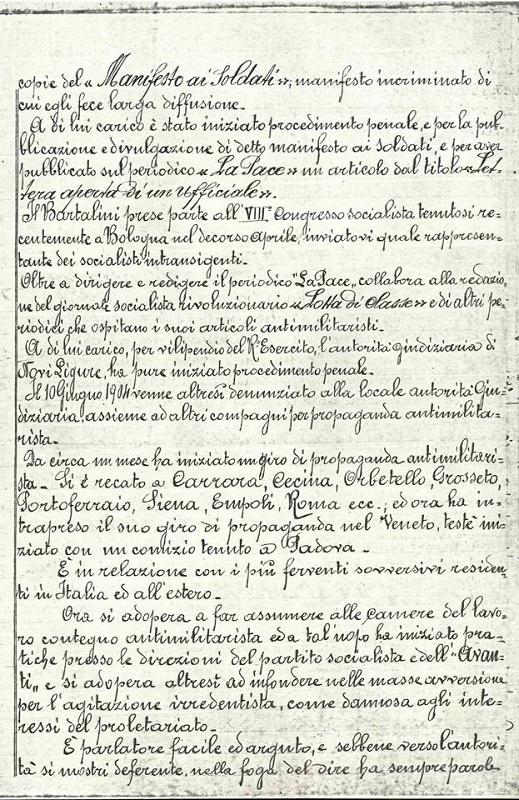 copie del « Manifesto ai Soldati »; manifesto incriminato di
cui egli fece larga diffusione.
A di lui carico è stato iniziato procedimento penale, e per la pub-
blicazione e divulgazione di detto manifesto ai soldati, e per aver
pubblicato sul periodico « La Pace » un articolo dal titolo « Let-
tera aperta di un Ufficiale ».
Il Bartalini prese parte all' VIII° Congresso socialista tenutosi re-
centemente a Bologna nel decorso Aprile, inviatovi quale rappresen-
tante dei socialisti intransigenti.
Oltre a dirigere e redigere il periodico "La Pace" collabora alla redazio-
ne del giornale socialista rivoluzionario « Lotta di Classe » e di altri pe-
riodici che ospitano i suoi articoli antimilitaristi.
A di lui carico, per vilipendio del R° Esercito, l'autorità giudiziaria di
Novi Ligure, ha pure iniziato procedimento penale.
Il 10 Giugno 1904 venne altresì denunziato alla locale autorità Giu-
diziaria, assieme ad altri compagni per propaganda antimilita-
rista.
Da circa un mese ha iniziato un giro di propaganda antimilitari-
sta. Si è recato a Carrara, Cecina, Orbetello, Grosseto,
Portoferraio, Siena, Empoli, Roma ecc.; ed ora ha in-
trapreso il suo giro di propaganda nel Veneto, testè ini-
ziato con un comizio tenuto a Padova.
È in relazione con i più ferventi sovversivi residen-
ti in Italia ed all'estero.
Ora si adopera a far assumere alle camere del lavo-
ro contegno antimilitarista ed a tal uopo ha iniziato pra-
tiche presso le direzioni del partito socialista e dell' "Avan-
ti" e si adopera altresì ad infondere nelle masse avversione
per l'agitazione irredentista, come dannosa agli inte-
ressi del proletariato.
È parlatore facile ed arguto, e sebbene verso l'autori-
tà si mostri deferente, nella foga del dire ha sempre parole